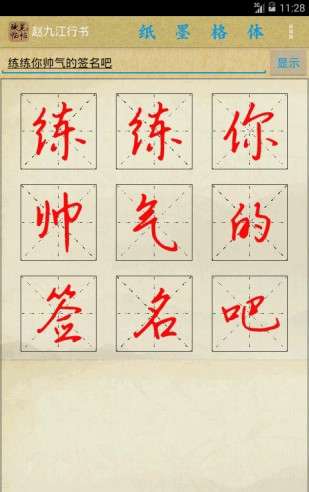 3G 11:28
赵九江行书 纸 墨 格 体
练练你帅气的签名吧 显示
练 练 你
帅 气 的
签 名 吧